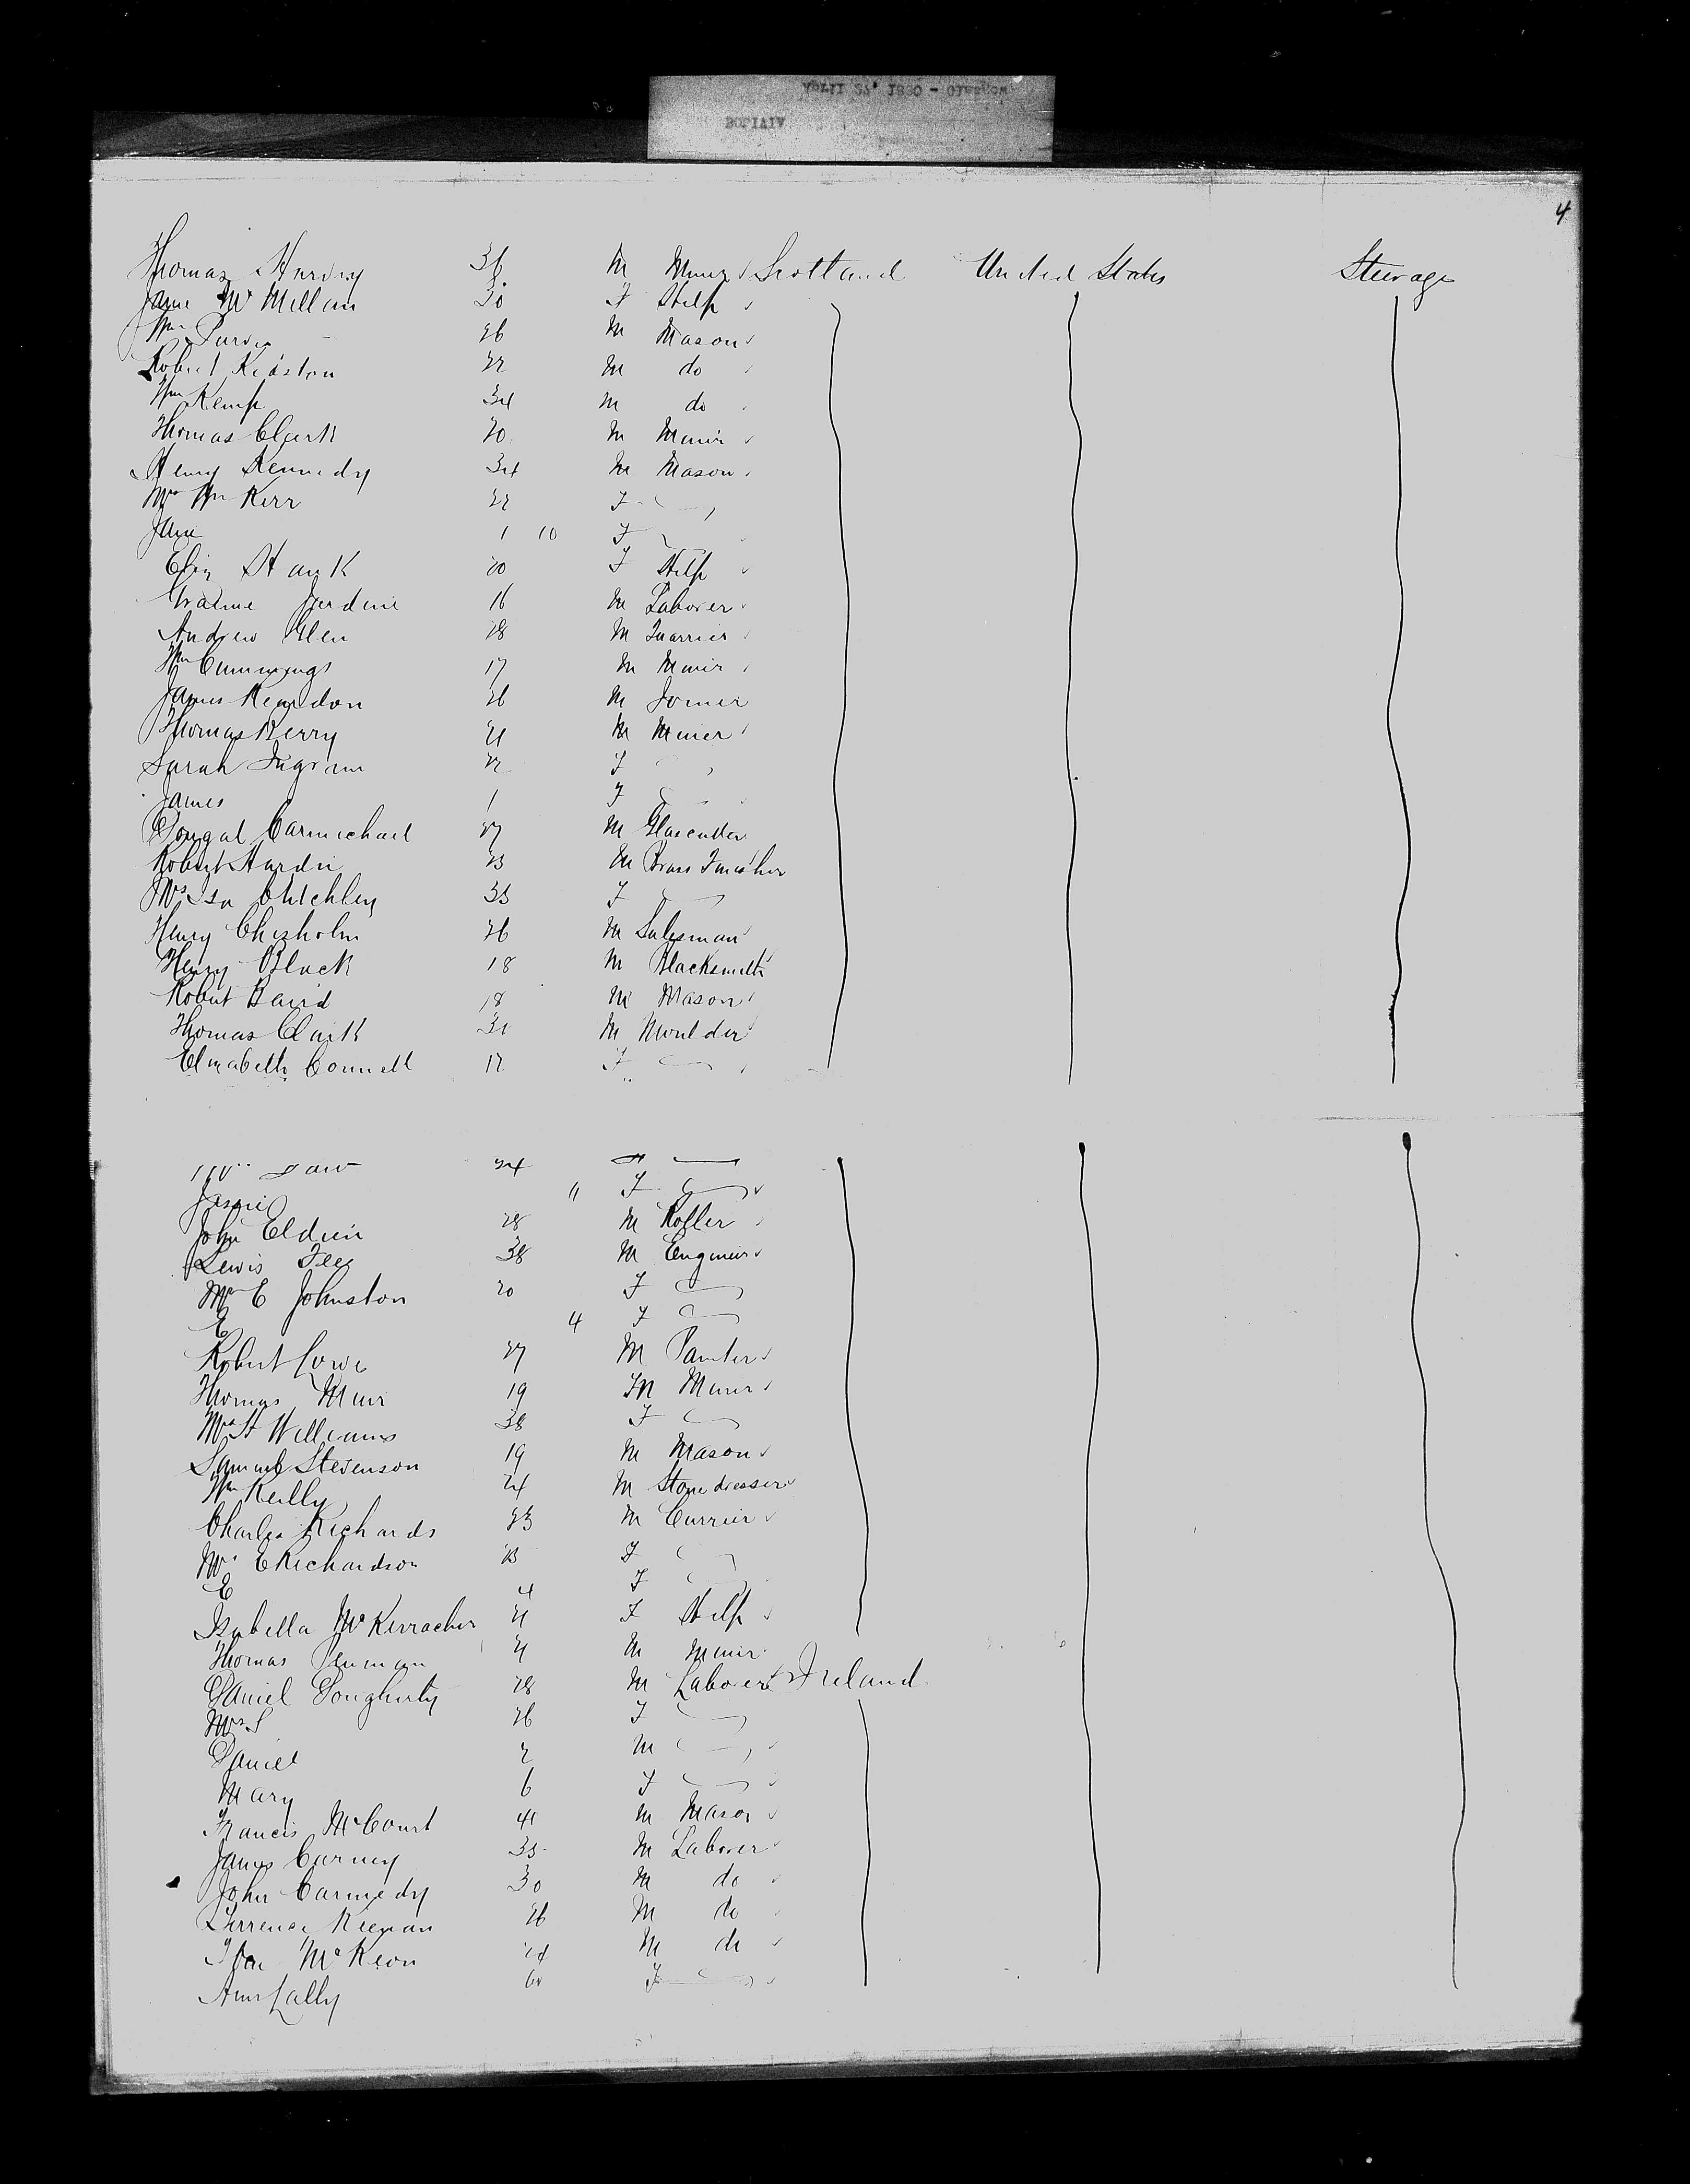 April 22, 1880 - Glasgow
BOLIVIA
4
Thomas Harvey 36 M Miner Scotland United States Steerage
Jane McMillan 30 F Help
Wm Purves 26 M Mason
Robert Kidston 22 M do
Wm Kemp 34 M do
Thomas Clark 20 M Miner
Henry Kennedy 34 M Mason
Mrs Wm Kerr 22 F
Jane 1 10 F
Eliz Hank 20 F Help
Jardine 16 M Laborer
Andrew Glen 28 M Quarrier
Wm Cummings 17 M Miner
James 26 M Joiner
Thomas Berry 21 M Miner
Sarah Ingram 22 F
James 1 F
Dougal Carmichael 27 M Glascutter
Robert Hardie 23 M Brass Finisher
Mrs Isa Critchley 33 F
Henry Chisholm 26 M Salesman
Henry Black 18 M Blacksmith
Robert Baird 18 M Mason
Thomas Clark M Moulder
Elizabeth Connell F
24
Jessie 11 F
John Eldin 28 M
Lewis Fee 38 M Engineer
Mrs E Johnston 20 F
E 4 F
Robert Lowe 27 M Painter
Thomas Muir 19 M Miner
Mrs H Williams 38 F
Samuel Stevenson 19 M Mason
Wm Reilly 24 M Stone dresser
Charles Richards 23 M Currier
Mrs E Richardson F
E 4 F
Isabella McKerracher 21 F Help
Thomas Penman 21 M Miner
Daniel Dougherty 28 M Laborer Ireland
Mrs S 26 F
Daniel 2 M
Mary 6 F
Francis McCourt M Mason
James Carney 35 M Laborer
John Carmedy 30 M do
Terrence Keenan 26 M do
McKeon 24 M do
Ann Lally 60 F